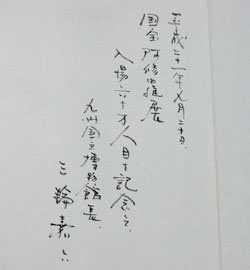 平成二十一年九月二十日
国宝阿修羅展
入場六十万人目を記念して
九州国立博物館長
三輪嘉六